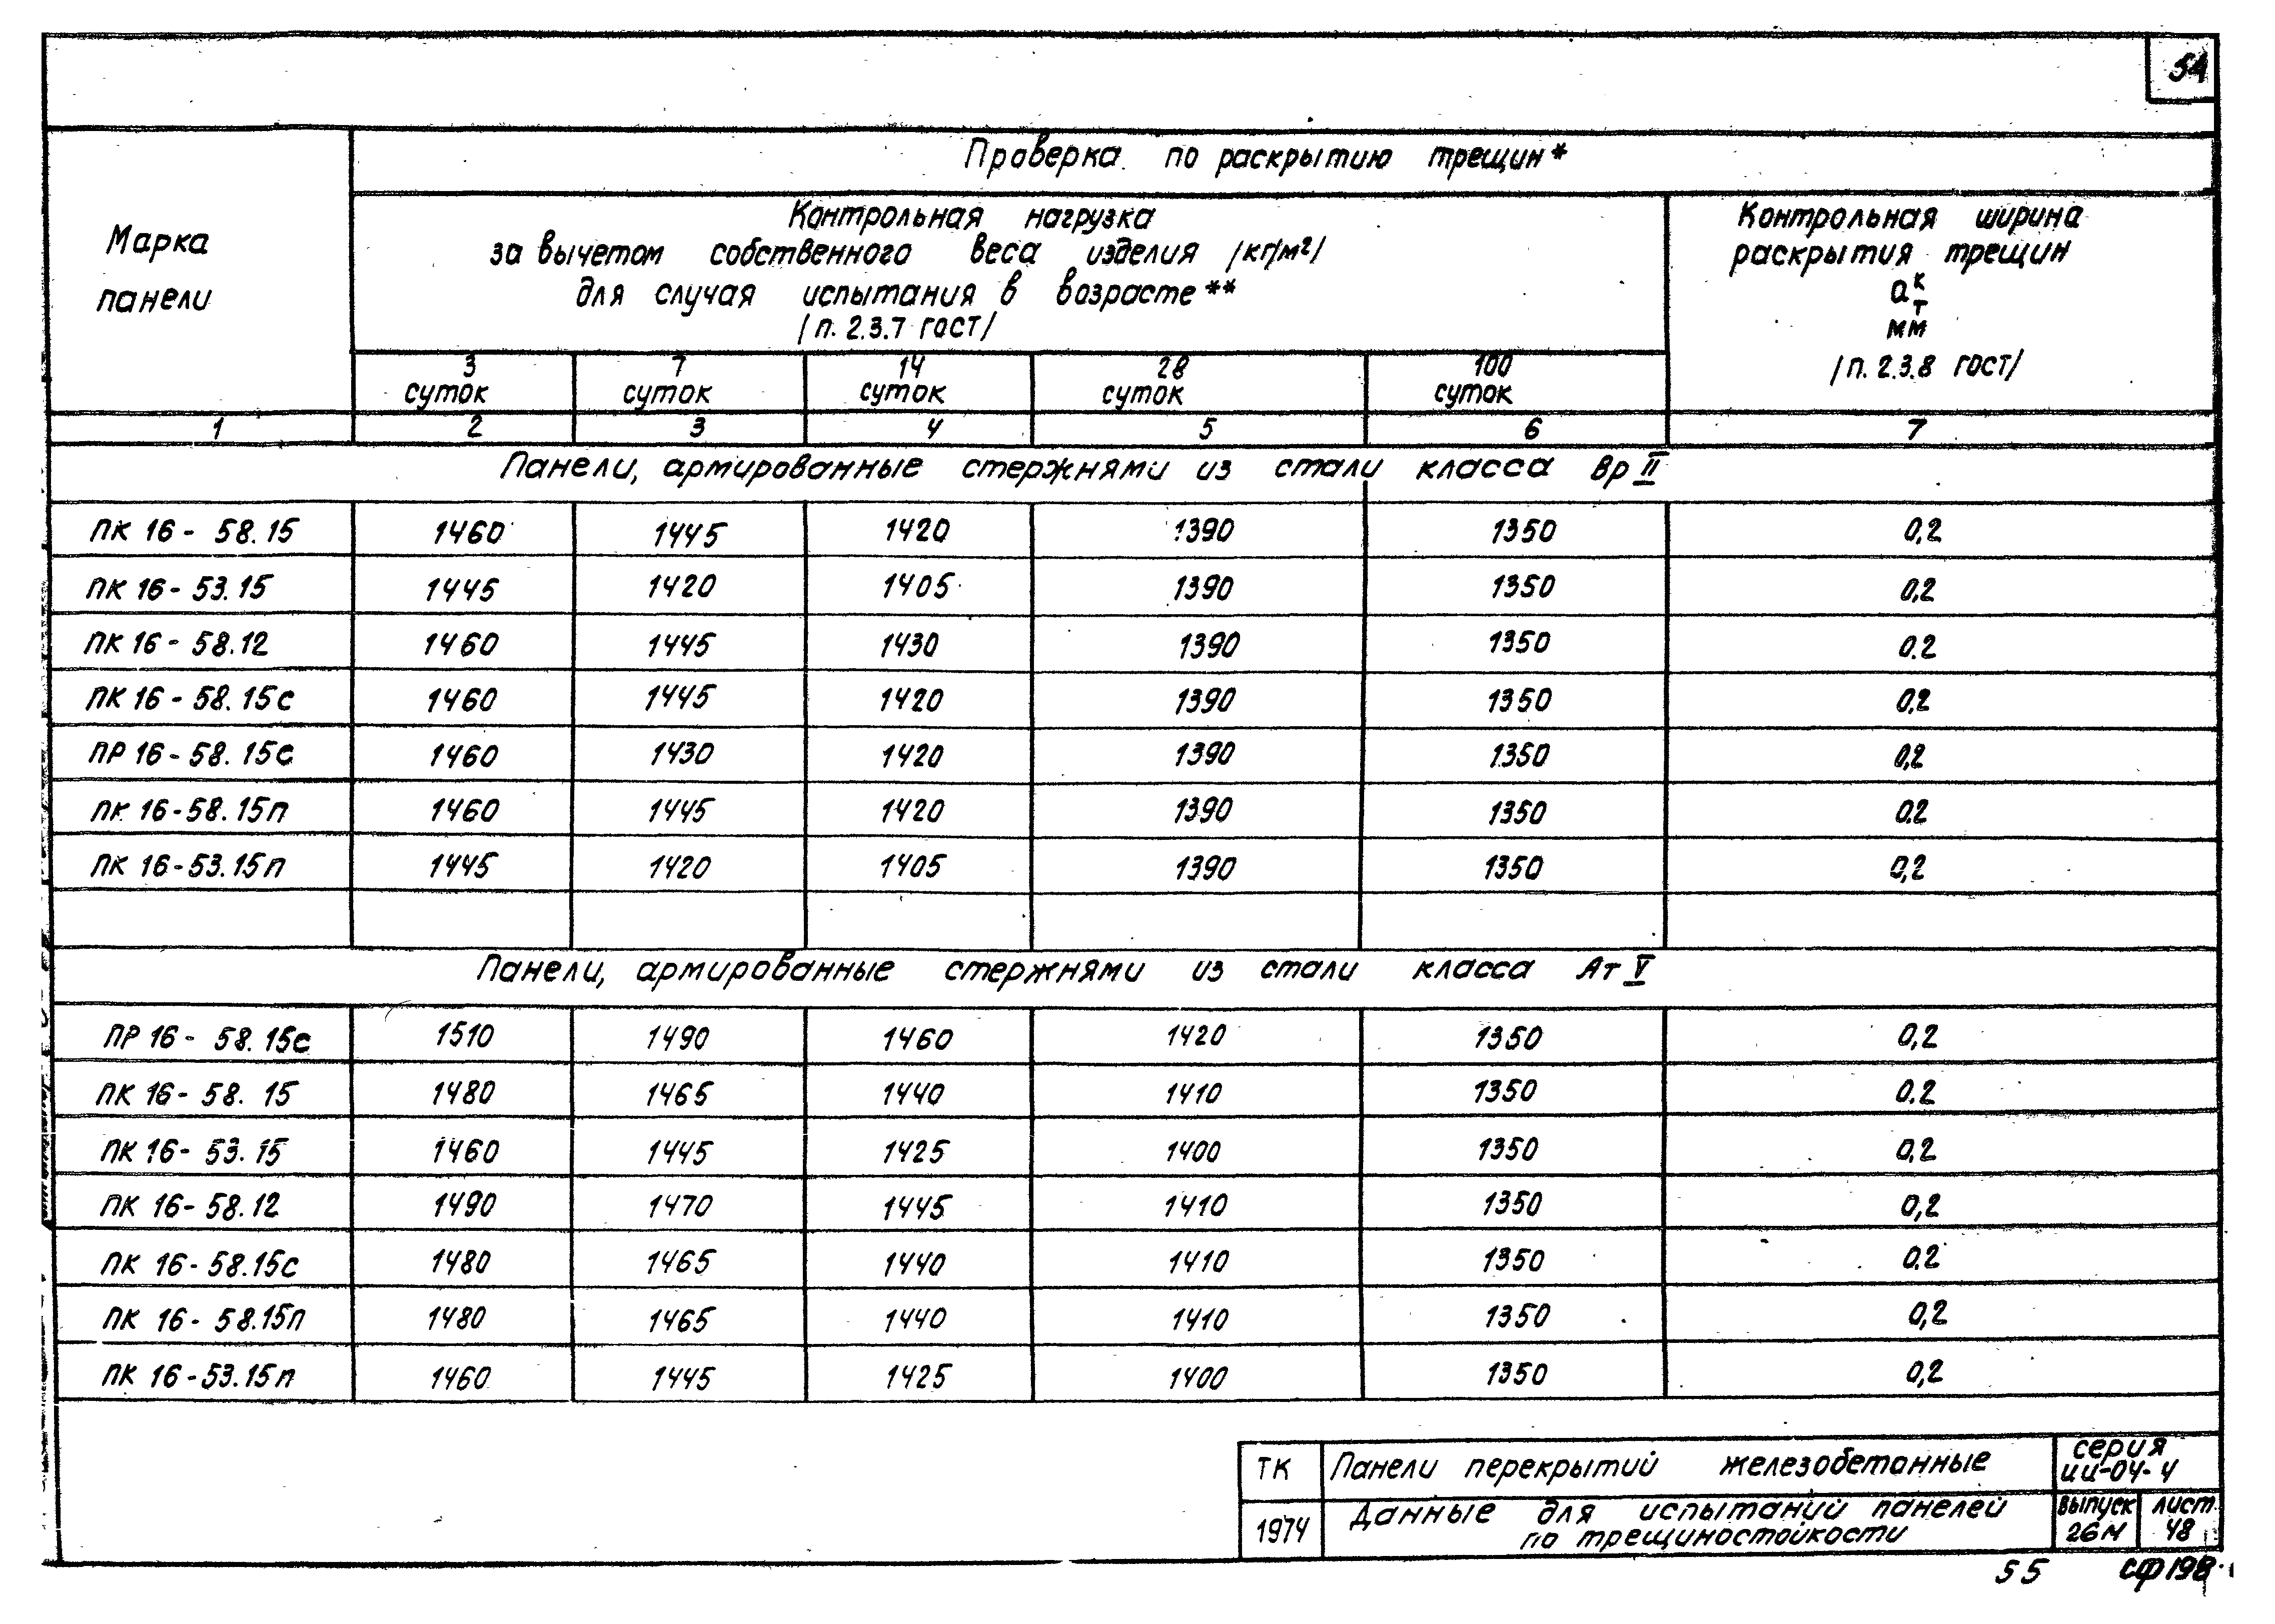 54
Проверка по раскрытию трещин*
Марка
панели
Контрольная нагрузка
за вычетом собственного веса изделия /кг/м²/
для случая испытания в возрасте**
/п. 2.3.7 ГОСТ/
Контрольная ширина
раскрытия трещин
aᵏт
мм
/п. 2.3.8 ГОСТ/
3 суток 7 суток 14 суток 28 суток 100 суток
1 2 3 4 5 6 7
Панели, армированные стержнями из стали класса Вр II
ПК 16 - 58.15 1460 1445 1420 1390 1350 0,2
ПК 16 - 53.15 1445 1420 1405 1390 1350 0,2
ПК 16 - 58.12 1460 1445 1430 1390 1350 0.2
ПК 16 - 58.15с 1460 1445 1420 1390 1350 0,2
ПР 16 - 58.15с 1460 1430 1420 1390 1350 0,2
ПК 16 - 58.15п 1460 1445 1420 1390 1350 0.2
ПК 16 - 53.15п 1445 1420 1405 1390 1350 0,2
Панели, армированные стержнями из стали класса Ат V
ПР 16 - 58.15с 1510 1490 1460 1420 1350 0,2
ПК 16 - 58.15 1480 1465 1440 1410 1350 0.2
ПК 16 - 53.15 1460 1445 1425 1400 1350 0,2
ПК 16 - 58.12 1490 1470 1445 1410 1350 0,2
ПК 16 - 58.15с 1480 1465 1440 1410 1350 0.2
ПК 16 - 58.15п 1480 1465 1440 1410 1350 0,2
ПК 16 - 53.15п 1460 1445 1425 1400 1350 0,2
ТК Панели перекрытий железобетонные серия
ИИ-04-4
1974 Данные для испытаний панелей
по трещиностойкости
выпуск лист
26М 48
55 СФ198